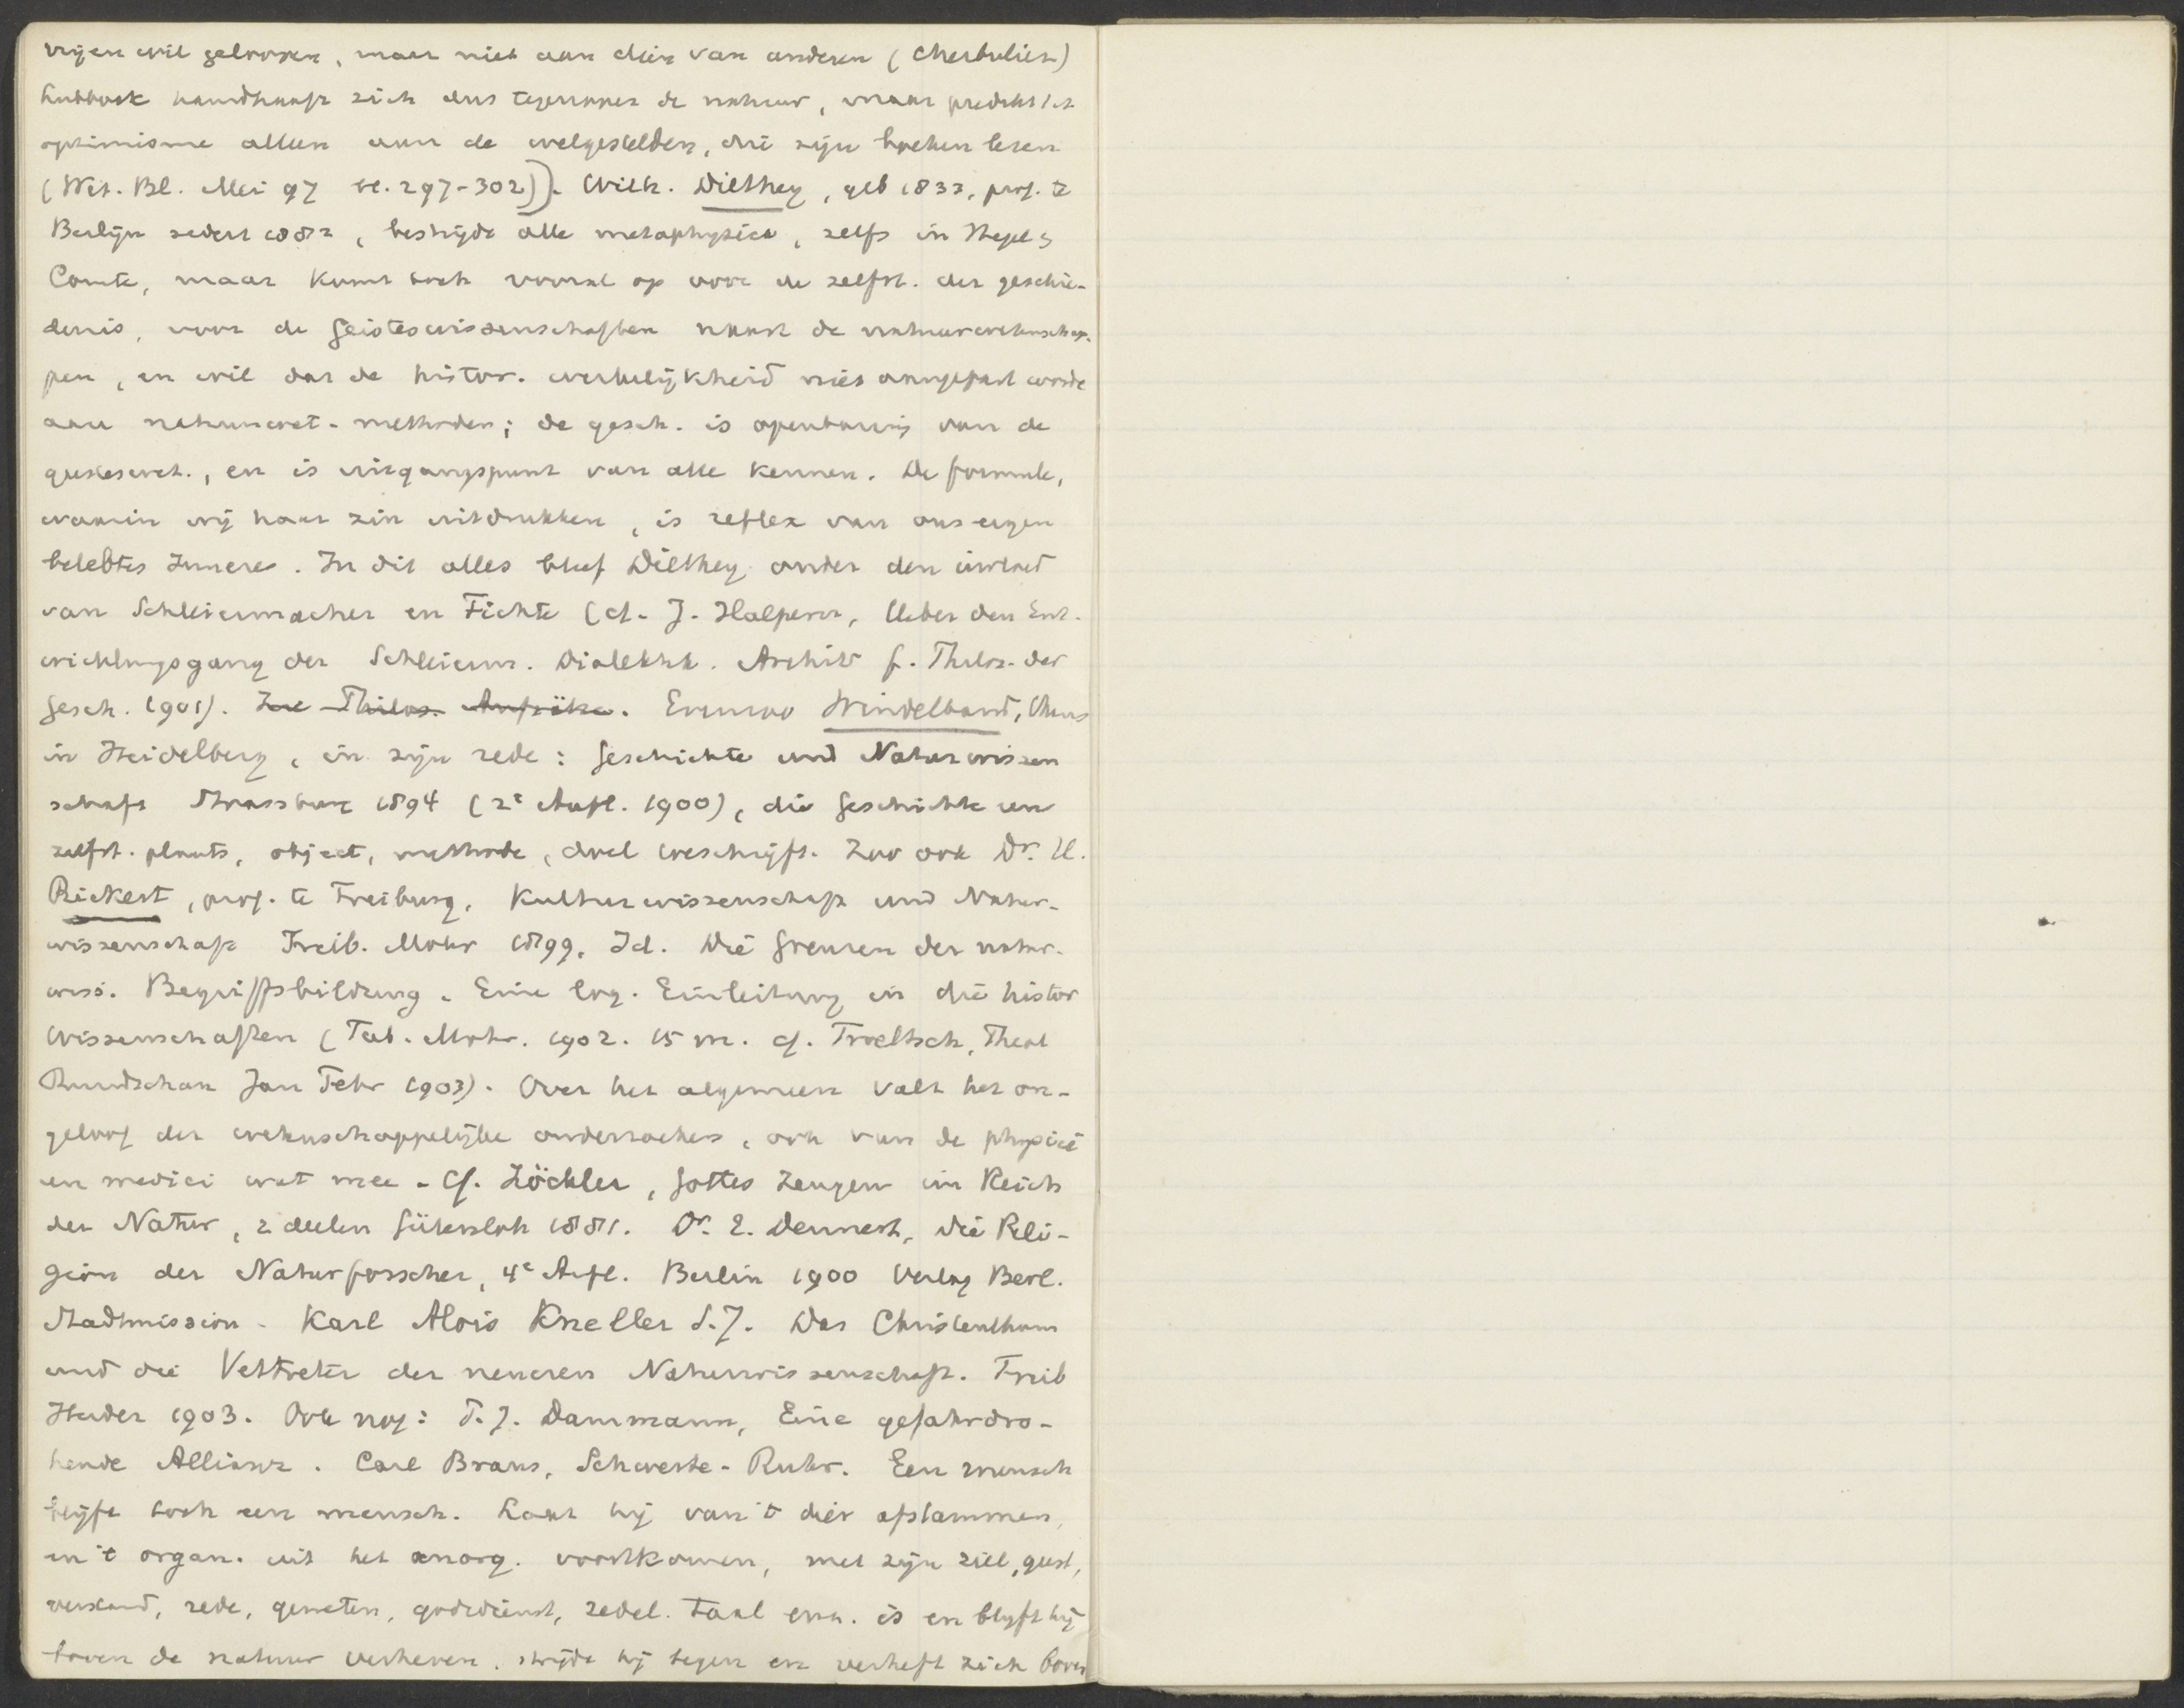 vrijen wil gelooven, maar niet aan dien van anderen (Cherbuliez)
Lubbock handhaaft zich dus tegenover de natuur, maar predikt het
optimisme alleen aan de welgestelden, die zijn boeken lezen
(Wet. Bl. Mei 97 bl. 297-302)). Wilh. Dilthey, geb 1833, prof. te
Berlijn sedert 1882, bestrijdt alle metaphysica, zelfs in Hegel &
Comte, maar komt toch vooral op voor de zelfst. der geschie-
denis, voor de Geisteswissenschaften naast de natuurwetenschap-
pen, en wil dat de histor. werkelijkheid niet aangepast worde
aan natuurwet-methoden; de gesch. is openbaring van de
geesteswet., en is uitgangspunt van alle kennen. De formule,
waarin wij haar zin uitdrukken, is reflex van ons eigen
belebtes Innere. In dit alles bleef Dilthey onder den invloed
van Schleiermacher en Fichte (cf. J. Halpern, Ueber den Ent-
wicklungsgang der Schleierm. Dialektik. Archiv f. Philos. der
Gesch. 1901). Zie Philos. Aufsätze. Evenzoo Windelband, thans
in Heidelberg, in zijn rede: Geschichte und Naturwissen
schaft Strassburg 1894 (2e Aufl. 1900), die Geschichte een
zelfst. plaats, object, methode, doel toeschrijft. Zoo ook Dr. H.
Rickert, prof. te Freiburg, Kulturwissenschaft und Natur-
wissenschaft Freib. Mohr 1899. Id. Die Grenzen der natur-
wiss. Begriffsbildung. Eine log. Einleitung in die histor
Wissenschaften (Tüb. Mohr. 1902. 15 m. cf. Troeltsch, Theol
Rundschau Jan Febr 1903). Over het algemeen valt het on-
geloof der wetenschappelijke onderzoekers, ook van de physici
en medici wat mee. Cf. Zöckler, Gottes Zeugen im Reich
der Natur, 2 deelen Gütersloh 1881. Dr. E. Dennert, Die Reli-
gion der Naturforscher, 4e Aufl. Berlin 1900 Verlag Berl.
Stadtmission. Karl Alois Kneller S.J. Das Christenthum
und die Vertreter der neueren Naturwissenschaft. Freib
Herder 1903. Ook nog: T. J. Dammann, Eine gefahrdro-
hende Allianz. Carl Braus, Schwerte-Ruhr. Een mensch
blijft toch een mensch. Laat hij van 't dier afstammen,
en 't organ. uit het anorg. voortkomen, met zijn ziel, geest,
verstand, rede, geweten, godsdienst, zedel. taal enz. is en blijft hij
boven de natuur verheven. strijdt hij tegen en verheft zich boven